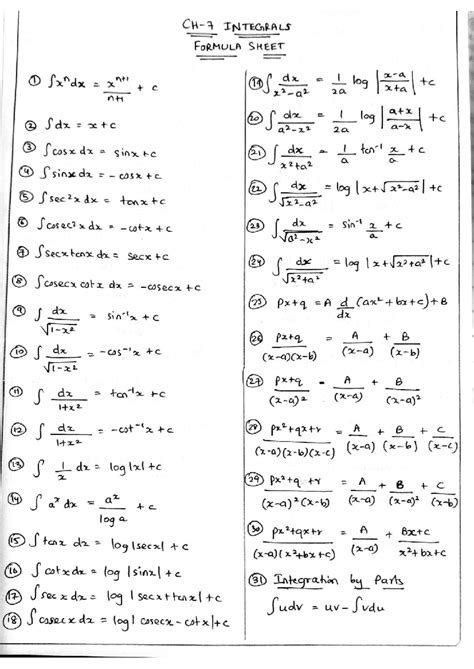 CH-7 INTEGRALS
FORMULA SHEET
① ∫xⁿdx = xⁿ⁺¹/n+1 + c
② ∫dx = x+c
③ ∫cosx dx = sinx+c
④ ∫sinx dx = -cosx+c
⑤ ∫sec²x dx = tanx+c
⑥ ∫cosec²x dx = -cotx+c
⑦ ∫secxtanx dx = secx+c
⑧ ∫cosecx cotx dx = -cosecx+c
⑨ ∫dx/√1-x² = sin⁻¹x+c
⑩ ∫dx/√1-x² = -cos⁻¹x+c
⑪ ∫dx/1+x² = tan⁻¹x+c
⑫ ∫dx/1+x² = -cot⁻¹x+c
⑬ ∫1/x dx = log|x|+c
⑭ ∫aˣdx = aˣ/log a + c
⑮ ∫tanx dx = log|secx|+c
⑯ ∫cotx dx = log|sinx|+c
⑰ ∫secx dx = log|secx+tanx|+c
⑱ ∫cosecx dx = log|cosecx-cotx|+c
⑲ ∫dx/x²-a² = 1/2a log|x-a/x+a|+c
⑳ ∫dx/a²-x² = 1/2a log|a+x/a-x|+c
㉑ ∫dx/x²+a² = 1/a tan⁻¹ x/a + c
㉒ ∫dx/√x²-a² = log|x+√x²-a²|+c
㉓ ∫dx/√a²-x² = sin⁻¹ x/a + c
㉔ ∫dx/√x²+a² = log|x+√x²+a²|+c
㉕ px+q = A d/dx (ax²+bx+c)+B
㉖ px+q/(x-a)(x-b) = A/(x-a) + B/(x-b)
㉗ px+q/(x-a)² = A/(x-a) + B/(x-a)²
㉘ px²+qx+r/(x-a)(x-b)(x-c) = A/(x-a) + B/(x-b) + C/(x-c)
㉙ px²+q+r/(x-a)²(x-b) = A/(x-a) + B/(x-a)² + C/(x-b)
㉚ px²+qx+r/(x-a)(x²+bx+c) = A/(x-a) + Bx+C/x²+bx+c
㉛ Integration by Parts
∫udv = uv-∫vdu